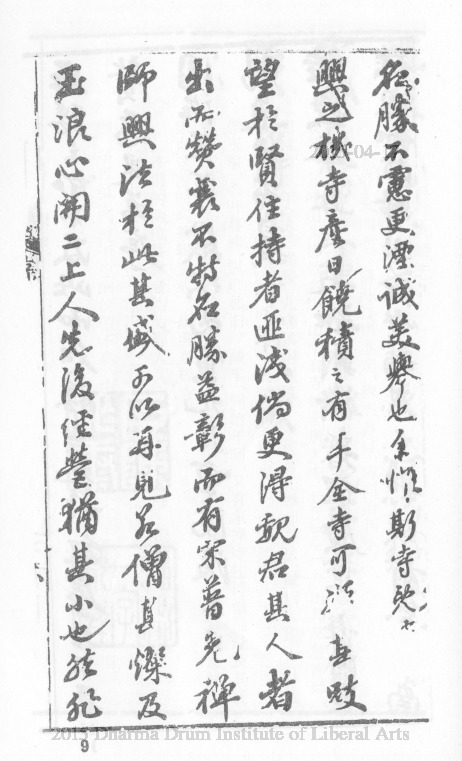 名勝不慮更湮誠美舉也余惟斯寺既
興之機寺產日饒積之有手全寺可
望於賢住持者匪淺倘更得觀君其人者
出而贊襄不特名勝益彰而有宋普先禪
師興法於此其盛可以再見若僧真燦及
玉浪心開二上人先後經營猶其小也
9
2013 Dharma Drum Institute of Liberal Arts